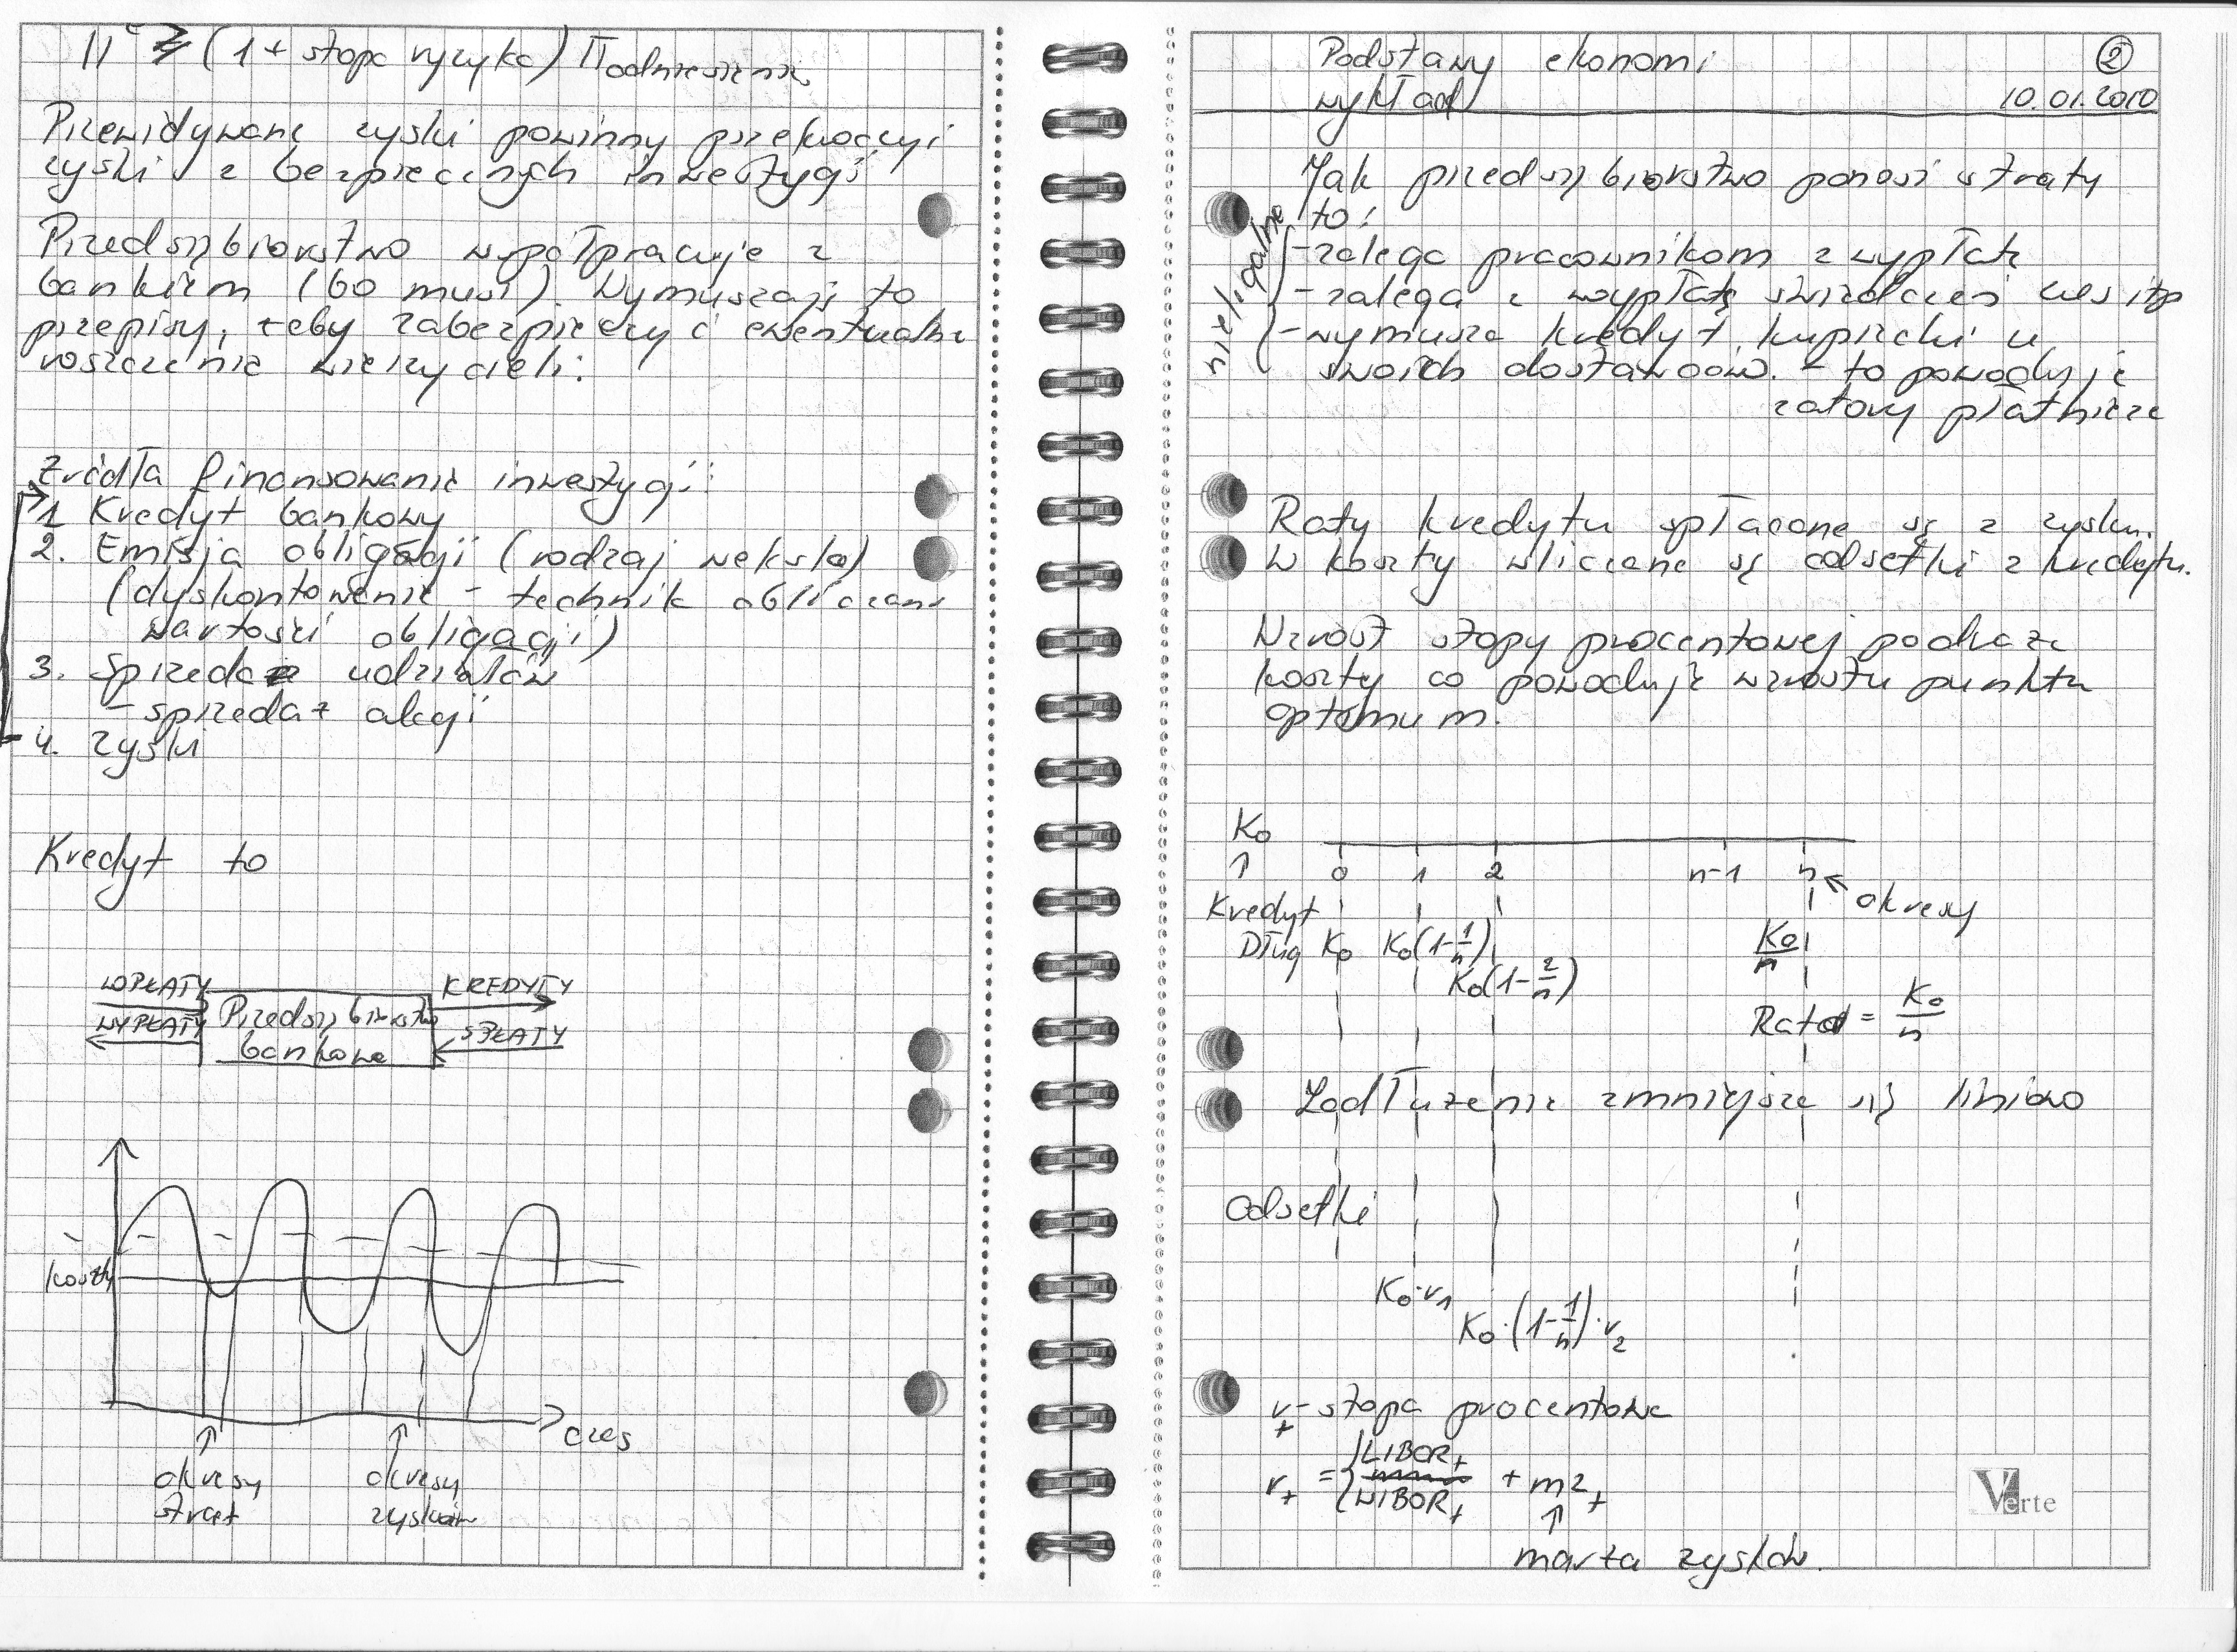 Πᵉ ≥ (1 + stopa ryzyka) Π odniesienia
Przewidywane zyski powinny przekroczyć
zyski z bezpiecznych inwestycji
Przedsiębiorstwo współpracuje z
bankiem (bo musi). Wymuszają to
przepisy, żeby zabezpieczyć ewentualne
roszczenie wierzycieli.
Źródła finansowanie inwestycji:
1 Kredyt bankowy
2. Emisja obligacji (rodzaj weksla)
(dyskontowanie - technik obliczani
wartości obligacji)
3. Sprzedaż udziałów
- sprzedaż akcji
4. zyski
Kredyt to
WPŁATY
WYPŁATY
Przedsiębiorstwo
bankowe
KREDYTY
SPŁATY
koszty
czas
okresy
strat
okresy
zysków
Podstawy ekonomi
wykład
②
10.01.2010
Jak przedsiębiorstwo ponosi straty
to:
nielegalne
- zalega pracownikom z wypłatą
- zalega z wypłatą świadczeń ZUS itp
- wymusza kredyt kupiecki u
swoich dostawców. - to powoduje
zatory płatnicze
Raty kredytu spłacane są z zysku.
W koszty wliczane są odsetki z kredytu.
Wzrost stopy procentowej podraża
koszty co powoduje wzrostu punktu
optimum.
K₀
↑
Kredyt
0 1 2 n-1 n ← okresy
Dług K₀ K₀(1-1/n) K₀/n
K₀(1-2/n)
Rata = K₀/n
Zadłużenie zmniejsza się liniowo
Odsetki
K₀·r₁
K₀·(1-1/n)·r₂
rₜ - stopa procentowa
rₜ = { LIBORₜ
WIBORₜ + mzₜ
↑
marża zysków.
Verte